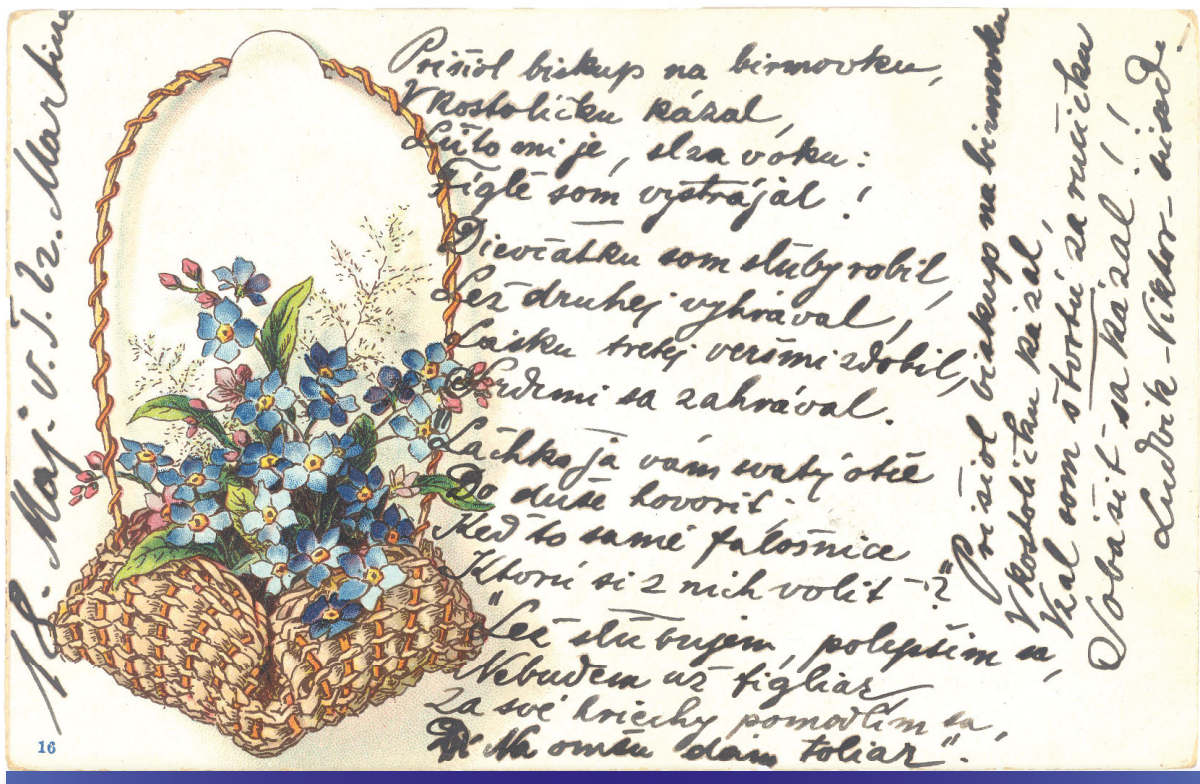 Prišiol biskup na birmovku,
V kostolíčku kázal,
Lúto mi je, slza v oku:
Figlé som vystrájal!
Dievčatku som sluby robil,
Lež druhej vyhrával,
Lásku tretej veršmi zdobil,
sa zahrával.
"Lachko ja vám svatý otče
Do duše hovoriť
Keď to samé falošnice
Ktorú si z nich voliť -?"
"Lež slubujem, polepším sa,
Nebudem už figliar
Za své hriechy pomodlím sa,
Na omšu dám toliar".
Prišiol biskup na birmovku
V kostolíčku kázal,
Vzal som štvrtú za ručičku
Sobášiť sa kázal!!
Ludvik-Viktor-
18. Maj. v. T. Sv. Martine
16